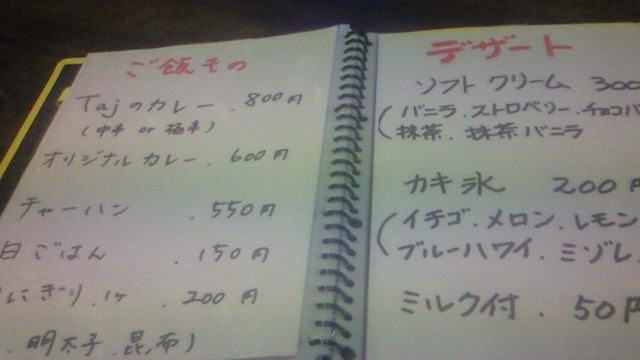 ご飯もの
Tajのカレー . 800円
(中辛 or 極辛)
オリジナル カレー . 600円
チャーハン . 550円
白ごはん . 150円
にぎり . 1ヶ . 200円
明太子 . 昆布)
デザート
ソフト クリーム 300
(バニラ . ストロベリー . チョコバ
抹茶 . 抹茶バニラ
カキ氷 200円
(イチゴ . メロン . レモン
ブルーハワイ . ミゾレ .
ミルク付 . 50円